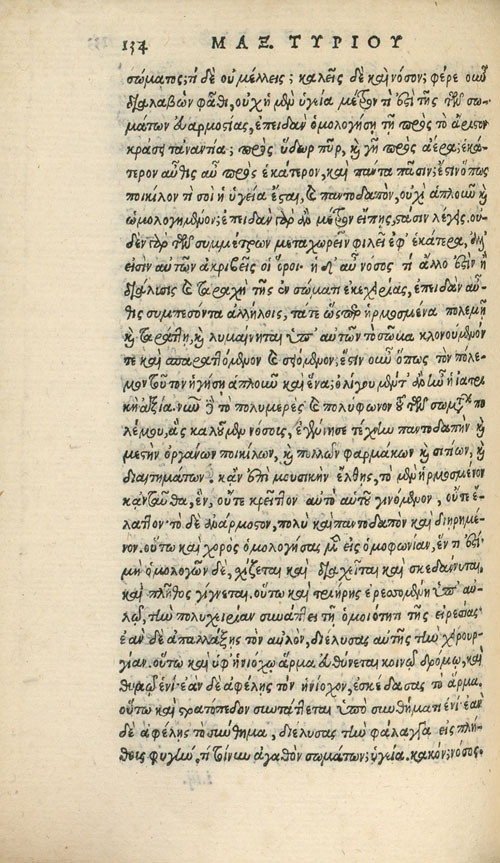 134 ΜΑΞ. ΤΥΡΙΟΥ
σώματος; τί δὲ οὐ μέλλεις; καλεῖς δὲ καὶ νόσον; φέρε οὖν
διαλαβὼν φάθι, οὐχὶ μὲν ὑγεία μέτρον τί ἐστὶ τῆς τῶν σω-
μάτων εὐαρμοστίας, ἐπειδὰν ὁμολογήσῃ τῇ πρὸς τὸ ἄριστον
κράσει τἀναντία; πρὸς ὕδωρ πῦρ, καὶ γῆ πρὸς ἀέρα; ἑκά-
τερον αὖθις αὖ πρὸς ἑκάτερον, καὶ πάντα πᾶσιν; ἔστιν ὅπως
ποικίλον τί σοι ἡ ὑγεία ἔσται, καὶ παντοδαπὸν, οὐχὶ ἁπλοῦν καὶ
ὡμολογημένον; ἐπειδὰν γὰρ τὸ μέτρον εἴπῃς, στάσιν λέγεις. οὐ-
δὲν γὰρ τῶν συμμέτρων μεταχωρεῖν φιλεῖ ἐφ' ἑκάτερα, ἀλλ'
εἰσὶν αὐτῶν ἀκριβεῖς οἱ ὅροι. ἡ δ' αὖ νόσος τί ἄλλο ἐστὶν ἢ
διάλυσις καὶ ταραχὴ τῆς ἐν σώματι ἐκεχειρίας, ἐπειδὰν αὖ-
θις συμπεσόντα ἀλλήλοις, τὰ τέως ἡρμοσμένα πολεμῇ
καὶ ταράττῃ, καὶ λυμαίνηται ὑπ' αὐτῶν τὸ σῶμα κλονούμενόν
τε καὶ σπαραττόμενον καὶ σειόμενον; ἔστιν οὖν ὅπως τὸν πόλε-
μον τοῦτον ἡγήσῃ ἁπλοῦν καὶ ἕνα; ὀλίγου μέντ' ἂν ἦν ἡ ἰατρι-
κὴ ἀξία. νῦν δὲ τὸ πολυμερὲς καὶ πολύφωνον τοῦ τῶν σωμάτων πο
λέμου, ἃς καλοῦμεν νόσοις, ἐγέννησε τέχνην παντοδαπὴν καὶ
μεστὴν ὀργάνων ποικίλων, καὶ πολλῶν φαρμάκων καὶ σιτίων, καὶ
διαιτημάτων. κἂν ἐπὶ μουσικὴν ἔλθῃς, τὸ μὲν ἡρμοσμένον
κἀνταῦθα, ἓν, οὔτε κρεῖττον αὐτὸ αὑτοῦ γινόμενον, οὔτε ἔ-
λαττον· τὸ δὲ ἀνάρμοστον, πολὺ καὶ παντοδαπὸν καὶ διῃρημέ-
νον. οὕτω καὶ χορὸς ὁμολογήσας μὲν εἰς ὁμοφωνίαν, ἕν τι ἐστί·
μὴ ὁμολογῶν δὲ, σχίζεται καὶ διαχεῖται καὶ σκεδάννυται,
καὶ πλῆθος γίγνεται. οὕτω καὶ τριήρης ἐρεσσομένη ὑπ' αὐ-
λῷ, τὴν πολυχειρίαν συνάπτει τῇ ὁμοιότητι τῆς εἰρεσίας·
ἐὰν δὲ ἀπαλλάξῃς τὸν αὐλὸν, διέλυσας αὐτῆς τὴν χειρουρ-
γίαν. οὕτω καὶ ὑφ' ἡνιόχῳ ἅρμα εὐθύνεται κοινῷ δρόμῳ, καὶ
θυμῷ ἑνί· ἐὰν δὲ ἀφέλῃς τὸν ἡνίοχον, ἐσκέδασας τὸ ἅρμα.
οὕτω καὶ στρατόπεδον συντάττεται ὑπὸ συνθήματι ἑνί· ἐὰν
δὲ ἀφέλῃς τὸ σύνθημα, διέλυσας τὴν φάλαγγα εἰς πλή-
θους φυγήν, τί τοίνυν ἀγαθὸν σωμάτων; ὑγεία. κακόν; νόσος.